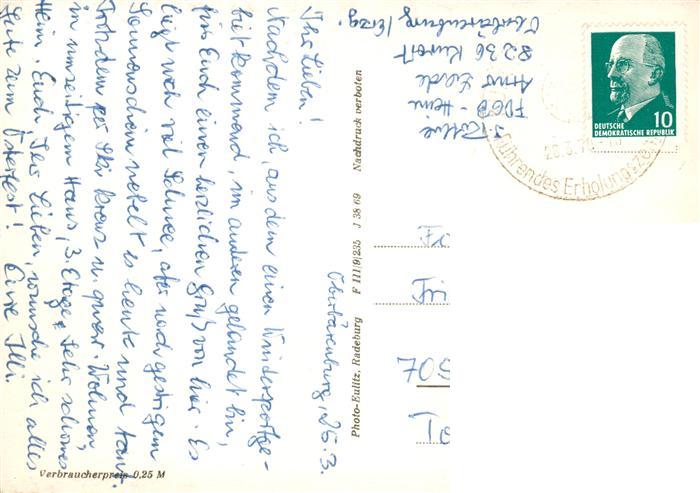 Oberbärenburg, 26.3.
Ihr Lieben!
Nachdem ich, aus dem einen Wintersportge-
biet kommend, im anderen gelandet bin,
für Euch einen herzlichen Gruß von hier. Es
liegt noch viel Schnee, aber nach gestrigem
Sonnenschein nebelt es heute und taut.
Trotzdem per Ski kreuz u. quer. Wohnen
in umseitigem Haus, 3. Etage. Sehr schönes
Heim. Euch, Ihr Lieben, wünsche ich alles
Gute zum Osterfest! Eure Illi.
Verbraucherpreis 0,25 M
Photo-Eulitz, Radeburg F III|9|235 J 38 69 Nachdruck verboten
FDGB-Heim
8236 Kurort
Oberbärenburg/Erzg.
DEUTSCHE
DEMOKRATISCHE REPUBLIK
10
26.3.70
führendes Erholungsze
Fri
705